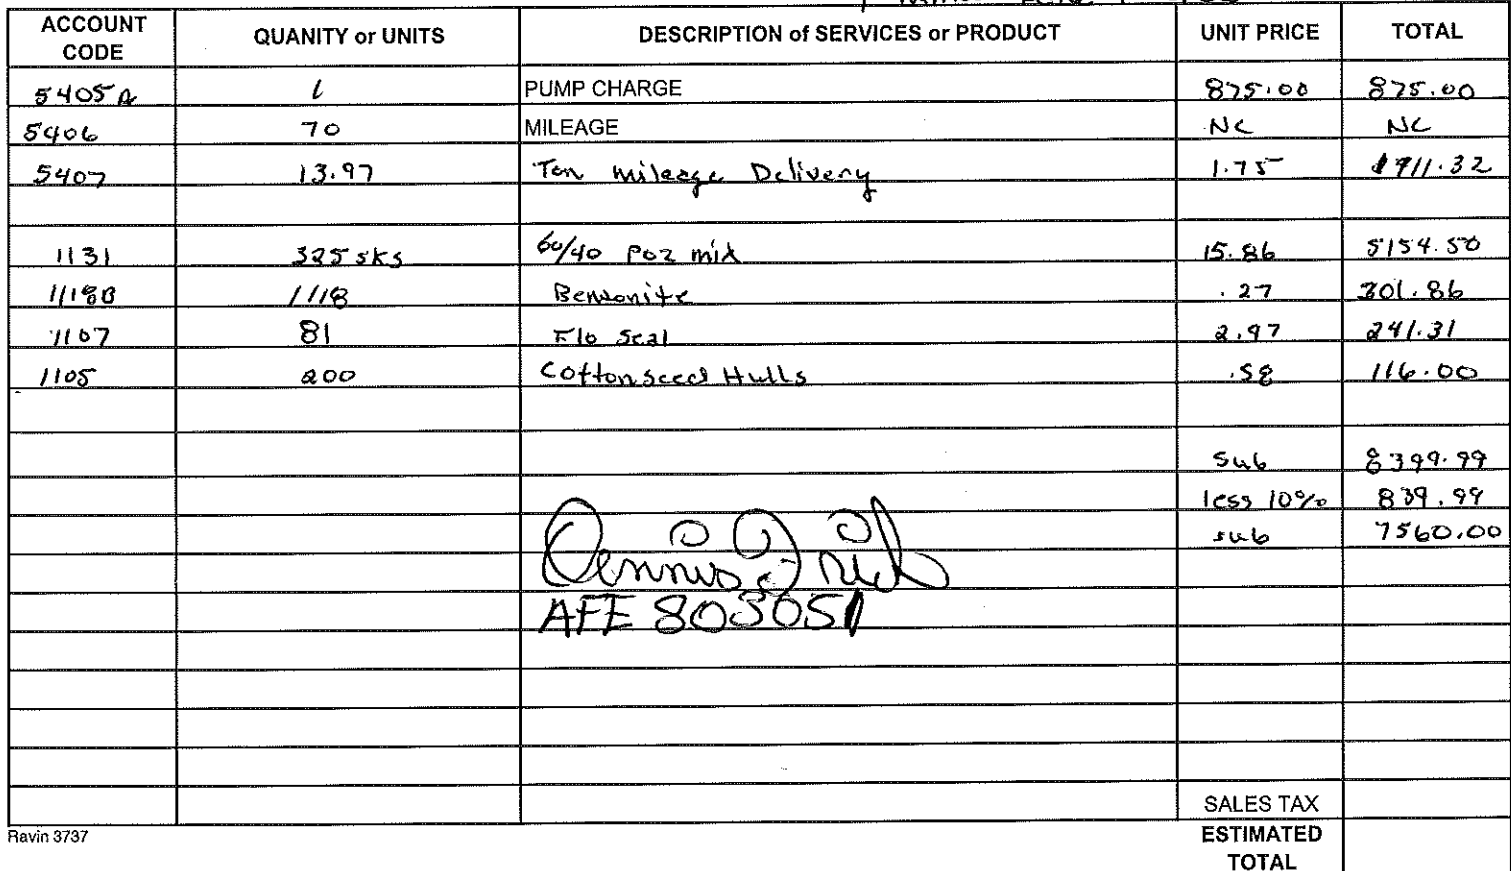 ACCOUNT CODE QUANITY or UNITS DESCRIPTION of SERVICES or PRODUCT UNIT PRICE TOTAL
5405A 1 PUMP CHARGE 875.00 875.00
5406 70 MILEAGE NC NC
5407 13.97 Ton mileage Delivery 1.75 1711.32
1131 325 sks 60/40 Poz mix 15.86 5154.50
1118B 1118 Bentonite .27 301.86
1107 81 Flo Seal 2.97 241.31
1105 200 Cottonseed Hulls .58 116.00
sub 8399.99
less 10% 839.99
sub 7560.00
AFE 803051
SALES TAX
Ravin 3737
ESTIMATED TOTAL